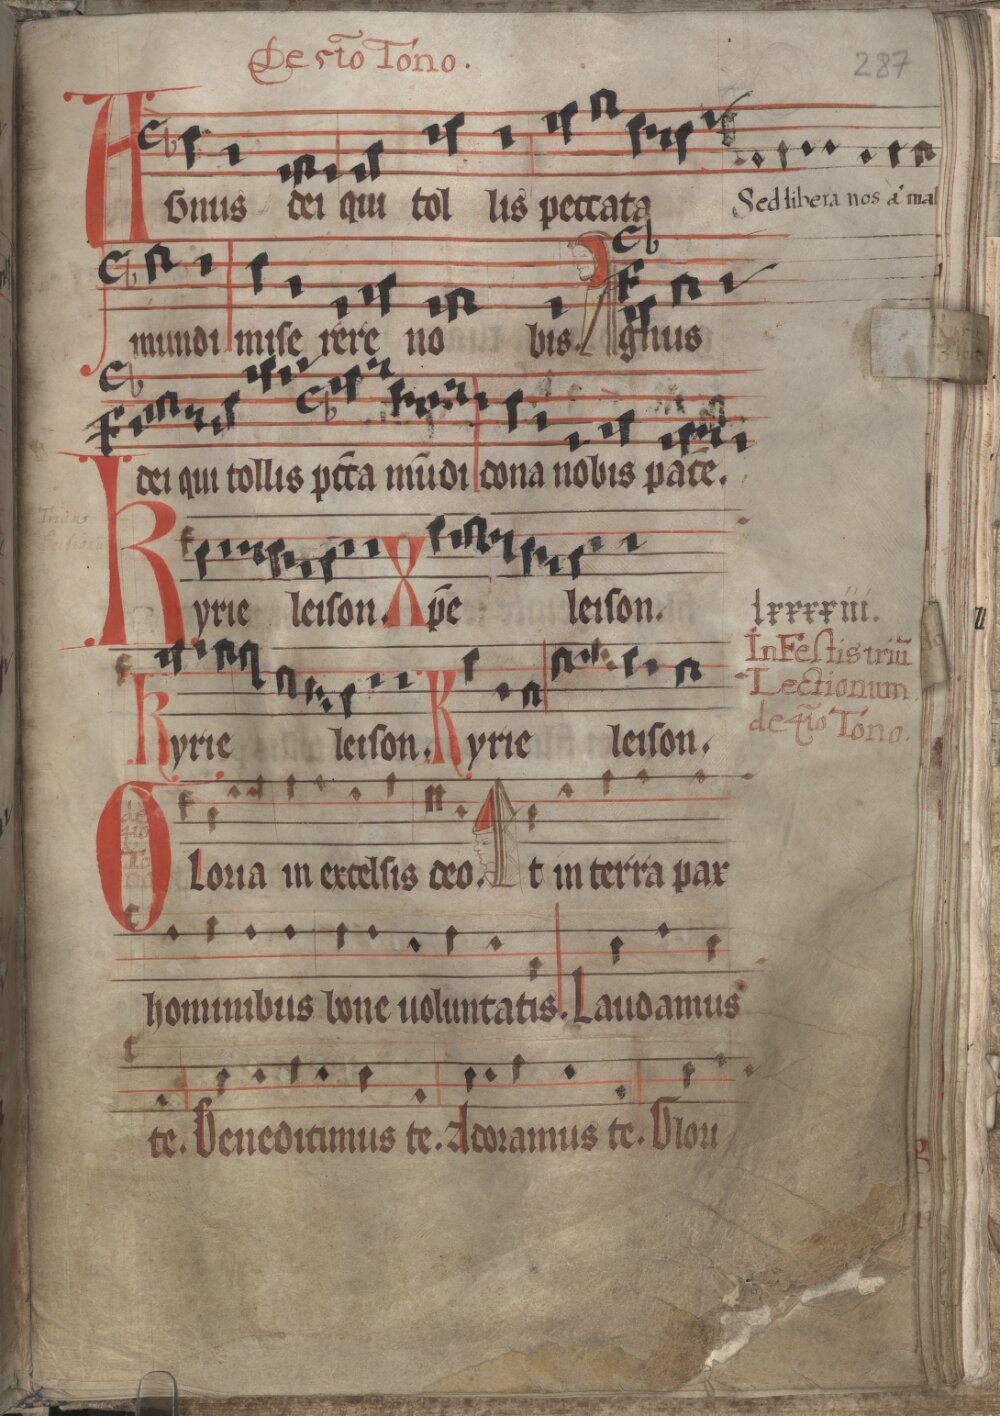 De sto Tono.
287
Agnus dei qui tol lis peccata
Sed libera nos a' mal
mundi mise rere no bis. Agnus
dei qui tollis pcc̄a mūdi dona nobis pacē.
Kyrie leison. Xpē leison.
lxxxxiii.
In Festis triū
Lectionum
de q̄to Tono.
Kyrie leison. Kyrie leison.
Gloria in excelsis deo. Et in terra pax
hominibus bone uoluntatis. Laudamus
te. Benedicimus te. Adoramus te. Glori